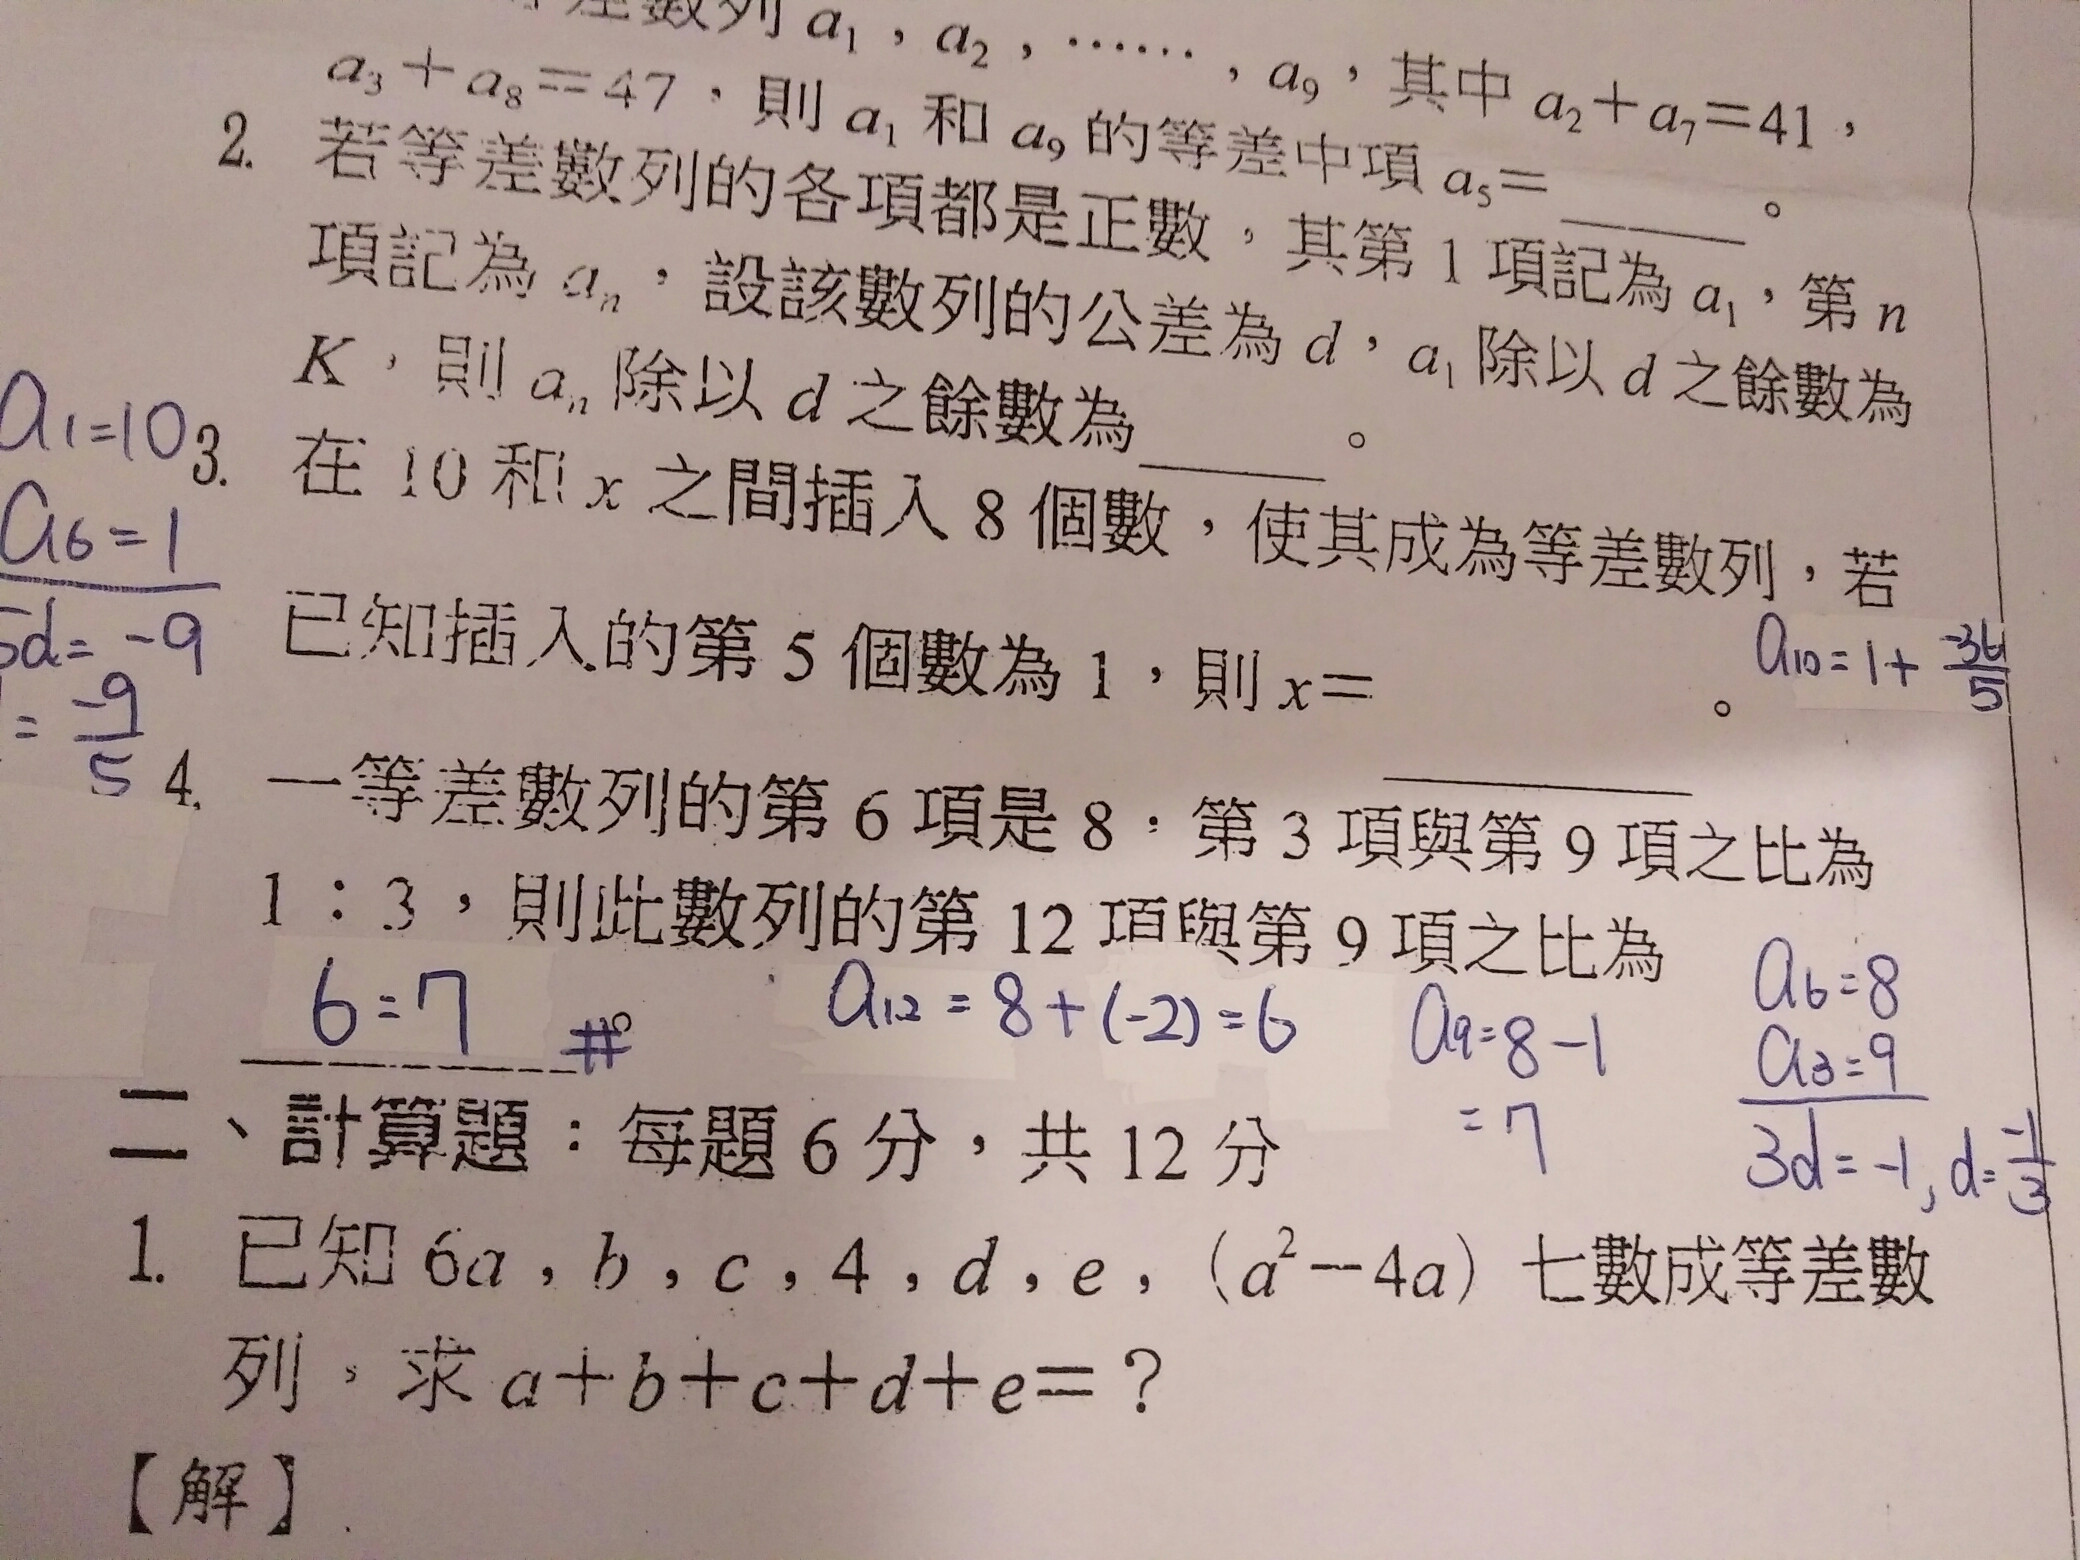 等差數列 a₁，a₂，……，a₉，其中 a₂＋a₇＝41，
a₃＋a₈＝47，則 a₁ 和 a₉ 的等差中項 a₅＝______。
2. 若等差數列的各項都是正數，其第 1 項記為 a₁，第 n
項記為 aₙ，設該數列的公差為 d，a₁ 除以 d 之餘數為
K，則 aₙ 除以 d 之餘數為______。
a₁=10
3. 在 10 和 x 之間插入 8 個數，使其成為等差數列，若
a₆=1
已知插入的第 5 個數為 1，則 x＝______。
5d=-9
= -9/5
a₁₀=1+ -36/5
4. 一等差數列的第 6 項是 8，第 3 項與第 9 項之比為
1：3，則此數列的第 12 項與第 9 項之比為
6=7 #。
a₁₂=8+(-2)=6
a₉=8-1
=7
a₆=8
a₃=9
3d=-1, d= -1/3
二、計算題：每題 6 分，共 12 分
1. 已知 6a，b，c，4，d，e，（a²－4a）七數成等差數
列，求 a＋b＋c＋d＋e＝？
【解】